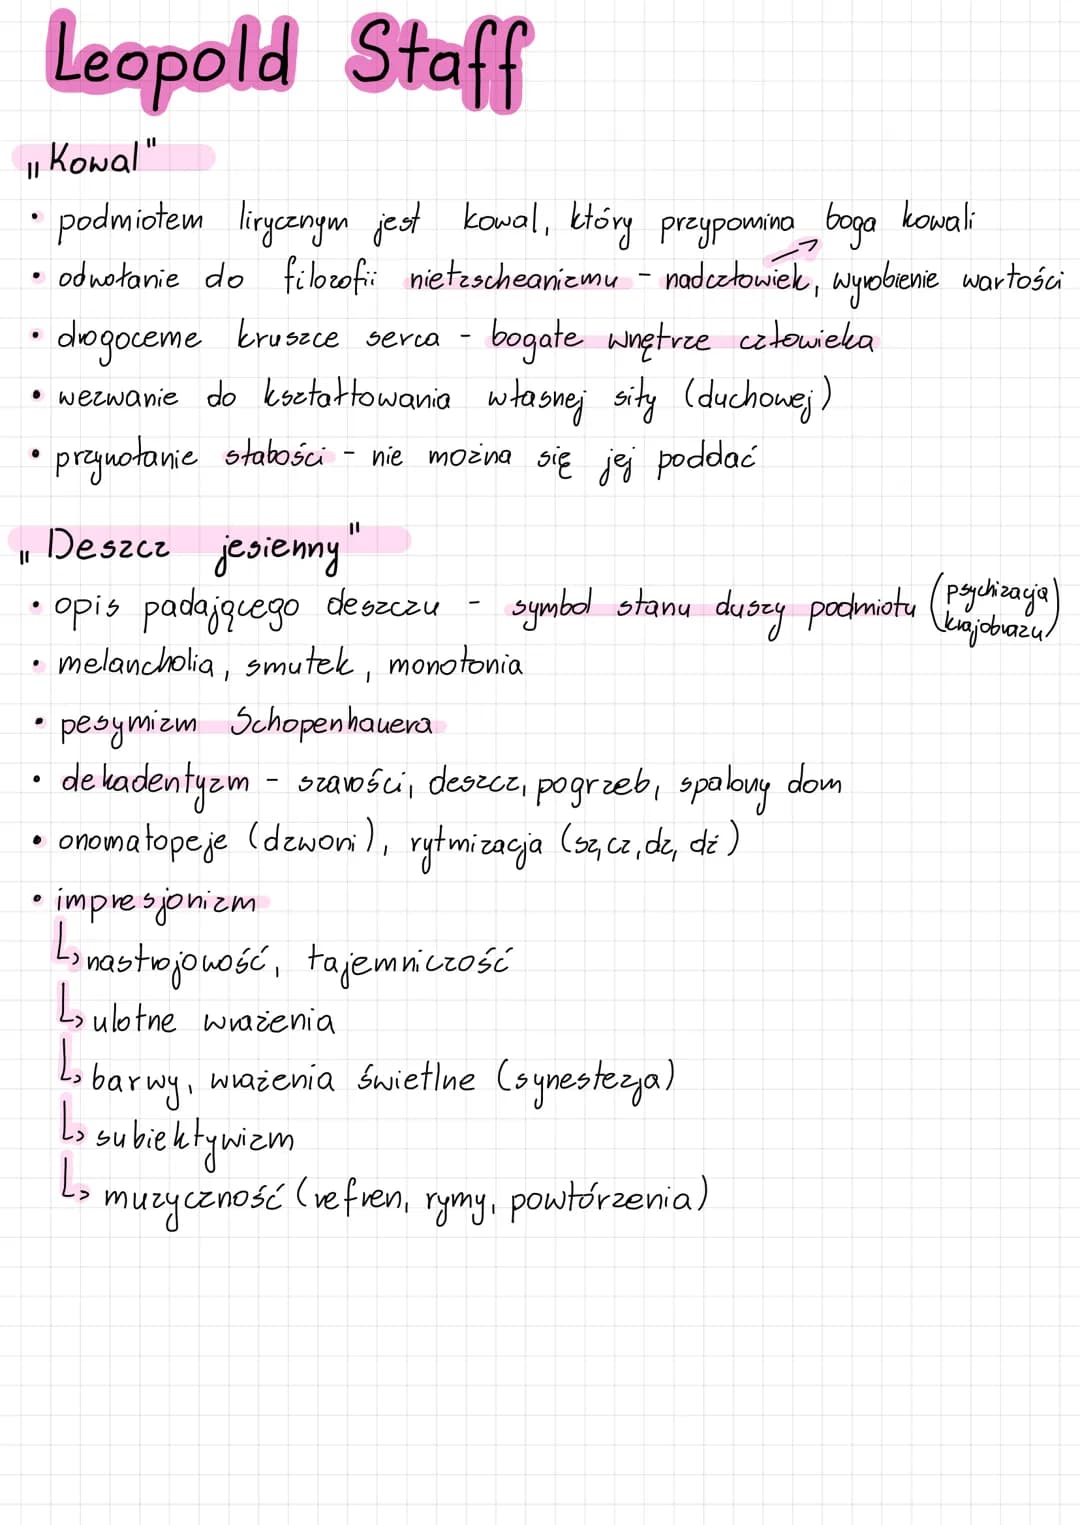 Leopold Staff
„Kowal"
• podmiotem lirycznym jest kowal, który przypomina boga kowali
• odwołanie do filozofii nietzscheanizmu - nadczłowiek, wyrobienie wartości
• drogocenne kruszce serca - bogate wnętrze człowieka
• wezwanie do kształtowania własnej siły (duchowej)
• przywołanie słabości - nie można się jej poddać
„Deszcz jesienny"
• opis padającego deszczu - symbol stanu duszy podmiotu (psychizacja krajobrazu)
• melancholia, smutek, monotonia
• pesymizm Schopenhauera
• dekadentyzm - szarości, deszcz, pogrzeb, spalony dom
• onomatopeje (dzwoni), rytmizacja (sz, cz, dz, dź)
• impresjonizm
↳ nastrojowość, tajemniczość
↳ ulotne wrażenia
↳ barwy, wrażenia świetlne (synestezja)
↳ subiektywizm
↳ muzyczność (refren, rymy, powtórzenia)